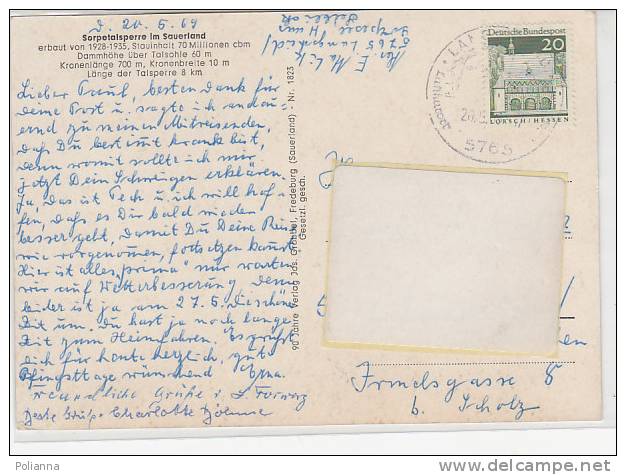 d. 20.5.69
Sorpetalsperre im Sauerland
erbaut von 1928-1935, Stauinhalt 70 Millionen cbm
Dammhöhe über Talsohle 60 m
Kronenlänge 700 m, Kronenbreite 10 m
Länge der Talsperre 8 km
Lieber Paul, besten Dank für
Deine Post u. sagte ich andau-
ernd zu meinen Mitreisenden,
daß Du bestimmt krank bist,
denn womit sollte ich mir
jetzt Dein Schweigen erklären.
Ja, das ist Pech u. ich will hof-
fen, daß es Dir bald wieder
besser geht, damit Du Deine Reise
wie vorgenommen, fortsetzen kannst.
Hier ist alles "prima" nur warten
wir auf Wetterbesserung, denn
leider ist ja am 27.5. die schöne
Zeit um. Du hast ja noch lange
Zeit zum Heimfahren. Es grüßt
Dich für heute herzlich, gute
Pfingsttage wünschend Erna.
freundliche Grüße v.
Beste Grüße Charlotte
90 Jahre Verlag Jos. Grobbel, Fredeburg (Sauerland) - Nr. 1823
Gesetzl. gesch.
5765 Langscheid
Sorpesee
Deutsche Bundespost
20
LORSCH/HESSEN
5765
Irmelsgasse 8
b. Scholz
Polianna
www.delcampe.net